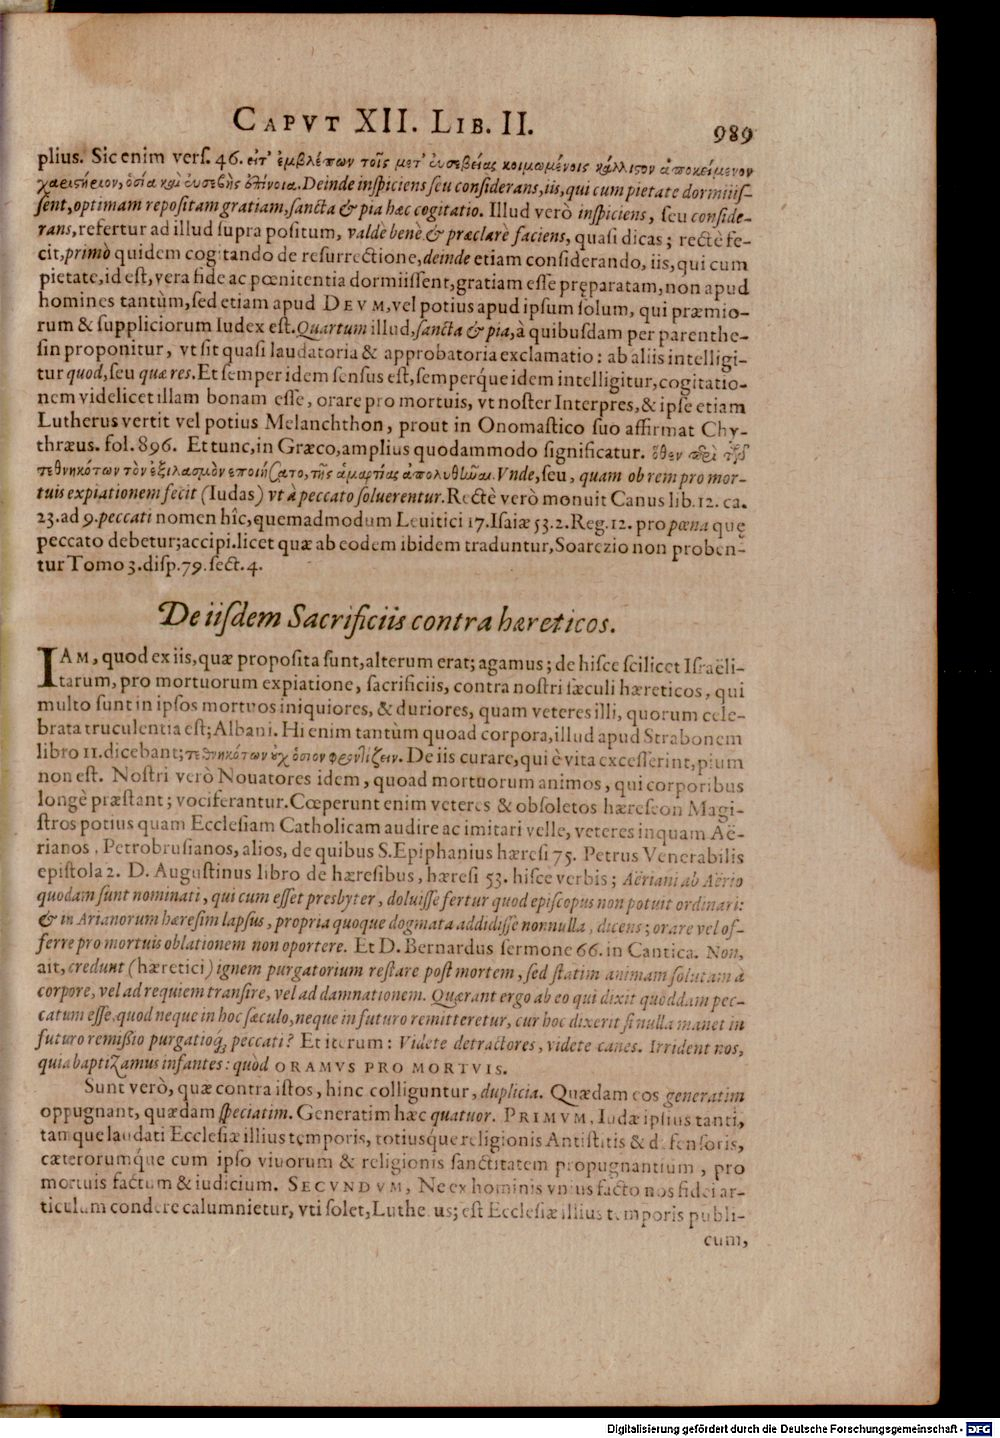 CAPVT XII. LIB. II. 989
plius. Sic enim vers. 46. εἶτ' ἐμβλέπων τοῖς μετ' εὐσεβείας κοιμωμένοις κάλλιστον ἀποκείμενον
χαριστήριον, ὁσία καὶ εὐσεβὴς ἐπίνοια. Deinde inſpiciens ſeu conſiderans, iis, qui cum pietate dormiiſ-
ſent, optimam repoſitam gratiam, ſancta & pia hæc cogitatio. Illud verò inſpiciens, ſeu conſide-
rans, refertur ad illud ſupra poſitum, valdè benè & præclarè faciens, quaſi dicas; rectè fe-
cit, primò quidem cogitando de reſurrectione, deinde etiam conſiderando, iis, qui cum
pietate, id eſt, vera fide ac pœnitentia dormiiſſent, gratiam eſſe pręparatam, non apud
homines tantùm, ſed etiam apud DEVM, vel potius apud ipſum ſolum, qui præmio-
rum & ſuppliciorum Iudex eſt. Quartum illud, ſancta & pia, à quibuſdam per parenthe-
ſin proponitur, vt ſit quaſi laudatoria & approbatoria exclamatio: ab aliis intelligi-
tur quod, ſeu quæ res. Et ſemper idem ſenſus eſt, ſemperq́ue idem intelligitur, cogitatio-
nem videlicet illam bonam eſſe, orare pro mortuis, vt noſter Interpres, & ipſe etiam
Lutherus vertit vel potius Melanchthon, prout in Onomaſtico ſuo affirmat Chy-
thræus. fol. 896. Et tunc, in Græco, amplius quodammodo ſignificatur. ὅθεν περὶ τῶν
τεθνηκότων τὸν ἐξιλασμὸν ἐποιήσατο, τῆς ἁμαρτίας ἀπολυθῶσαι. Vnde, ſeu, quam ob rem pro mor-
tuis expiationem fecit (Iudas) vt à peccato ſoluerentur. Rectè verò monuit Canus lib. 12. ca.
23. ad 9. peccati nomen hîc, quemadmodum Leuitici 17. Iſaiæ 53. 2. Reg. 12. pro pœna quę
peccato debetur; accipi. licet quæ ab eodem ibidem traduntur, Soarezio non proben-
tur Tomo 3. diſp. 79. ſect. 4.
De iiſdem Sacrificiis contra hæreticos.
IAM, quod ex iis, quæ propoſita ſunt, alterum erat; agamus; de hiſce ſcilicet Iſraëli-
tarum, pro mortuorum expiatione, ſacrificiis, contra noſtri ſæculi hæreticos, qui
multo ſunt in ipſos mortuos iniquiores, & duriores, quam veteres illi, quorum cele-
brata truculentia eſt; Albani. Hi enim tantùm quoad corpora, illud apud Strabonem
libro 11. dicebant; τεθνηκότων οὐχ ὅσιον φροντίζειν. De iis curare, qui è vita exceſſerint, pium
non eſt. Noſtri verò Nouatores idem, quoad mortuorum animos, qui corporibus
longè præſtant; vociferantur. Cœperunt enim veteres & obſoletos hæreſeon Magi-
ſtros potius quam Eccleſiam Catholicam audire ac imitari velle, veteres inquam Aë-
rianos, Petrobruſianos, alios, de quibus S. Epiphanius hæreſi 75. Petrus Venerabilis
epiſtola 2. D. Auguſtinus libro de hæreſibus, hæreſi 53. hiſce verbis; Aëriani ab Aërio
quodam ſunt nominati, qui cum eſſet presbyter, doluiſſe fertur quod epiſcopus non potuit ordinari:
& in Arianorum hæreſim lapſus, propria quoque dogmata addidiſſe nonnulla, dicens; orare vel of-
ferre pro mortuis oblationem non oportere. Et D. Bernardus ſermone 66. in Cantica. Non,
ait, credunt (hæretici) ignem purgatorium reſtare poſt mortem, ſed ſtatim animam ſolutam a
corpore, vel ad requiem tranſire, vel ad damnationem. Quærant ergo ab eo qui dixit quoddam pec-
catum eſſe, quod neque in hoc ſæculo, neque in futuro remitteretur, cur hoc dixerit ſi nulla manet in
futuro remiſſio purgatioq́; peccati? Et iterum: Videte detractores, videte canes. Irrident nos,
quia baptizamus infantes: quòd ORAMVS PRO MORTVIS.
Sunt verò, quæ contra iſtos, hinc colliguntur, duplicia. Quædam eos generatim
oppugnant, quædam ſpeciatim. Generatim hæc quatuor. PRIMVM, Iudæ ipſius tanti,
tamque laudati Eccleſiæ illius temporis, totiusq́ue religionis Antiſtitis & defenſoris,
cæterorumq́ue cum ipſo viuorum & religionis ſanctitatem propugnantium, pro
mortuis factum & iudicium. SECVNDVM, Ne ex hominis vnius facto nos fidei ar-
ticulum condere calumnietur, vti ſolet, Lutherus; eſt Eccleſiæ illius temporis publi-
cum,
Digitalisierung gefördert durch die Deutsche Forschungsgemeinschaft - DFG